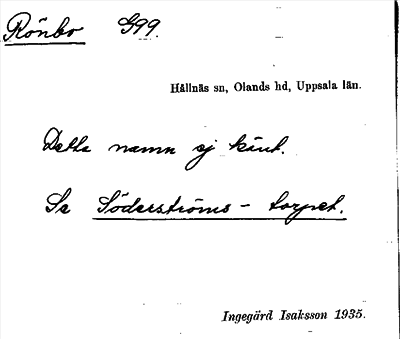 Rönbo G99.
Hållnäs sn, Olands hd, Uppsala län.
Detta namn ej känt.
Se Söderströms-torpet.
Ingegärd Isaksson 1935.